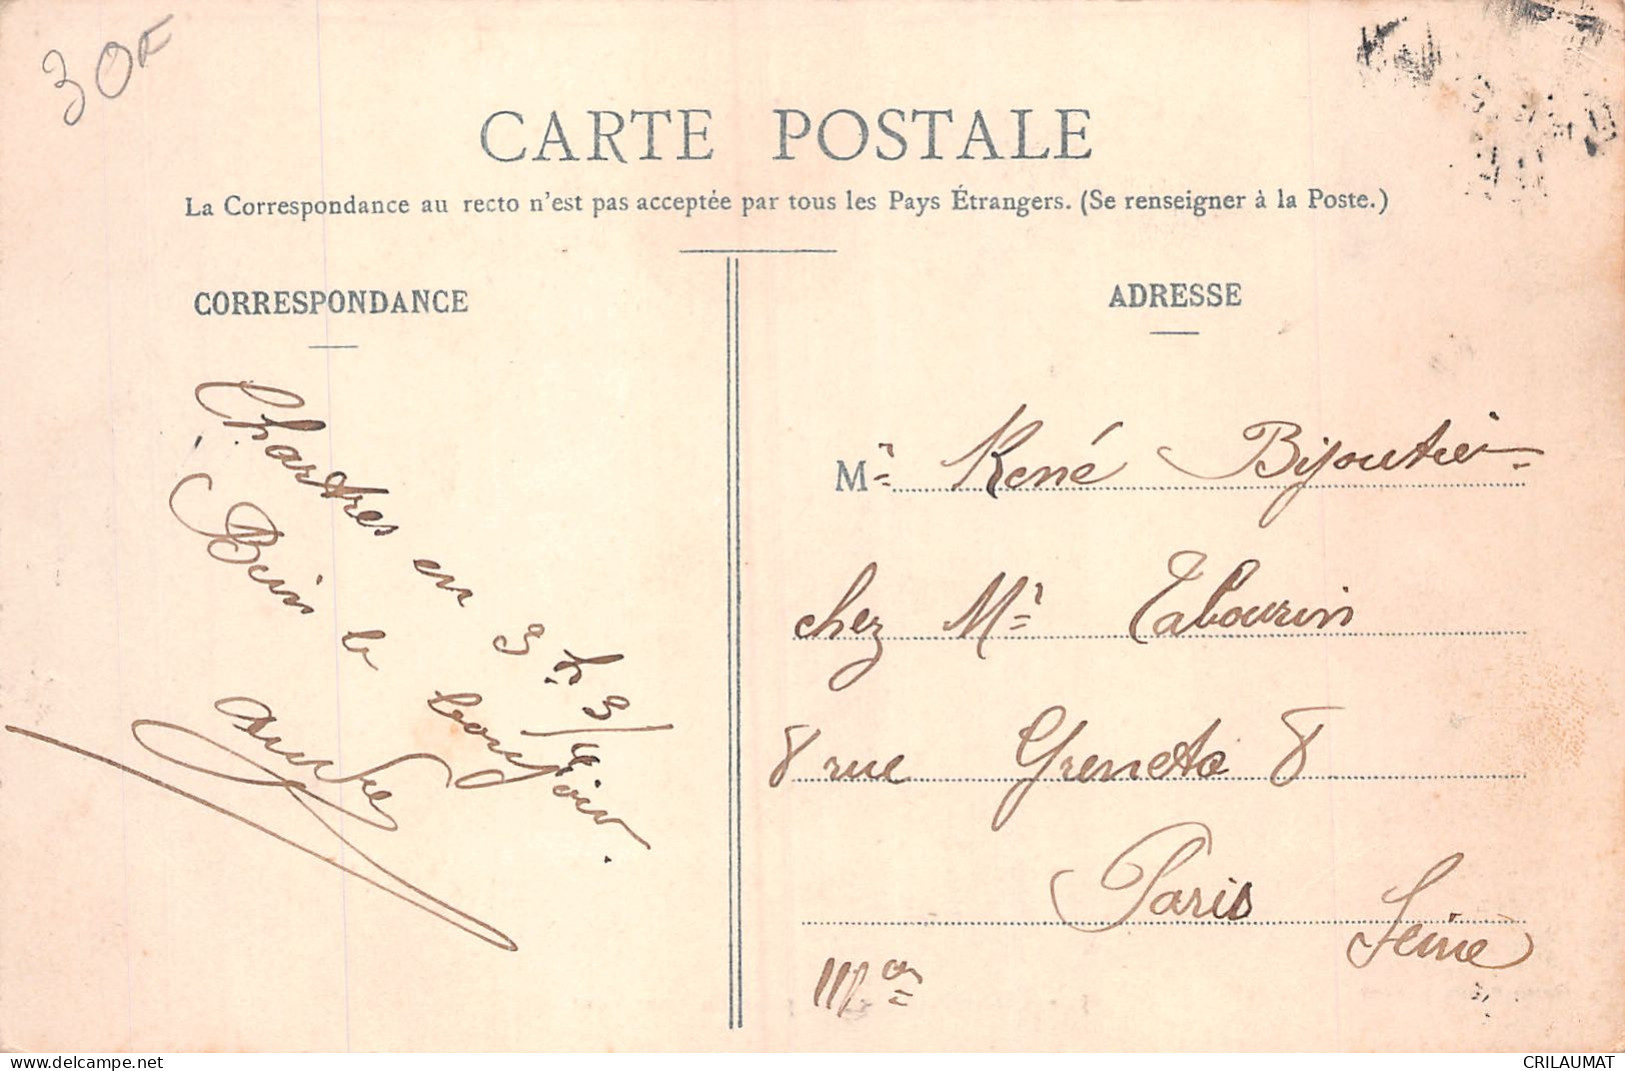 30F
CARTE POSTALE
La Correspondance au recto n'est pas acceptée par tous les Pays Étrangers. (Se renseigner à la Poste.)
CORRESPONDANCE
Chartres en 3 h. 3/4
Bien le bonjour.
André
ADRESSE
Mr René Bijoutier
chez Mr Tabourin
8 rue Greneta 8
Paris
Seine
delcampe.net
CRILAUMAT